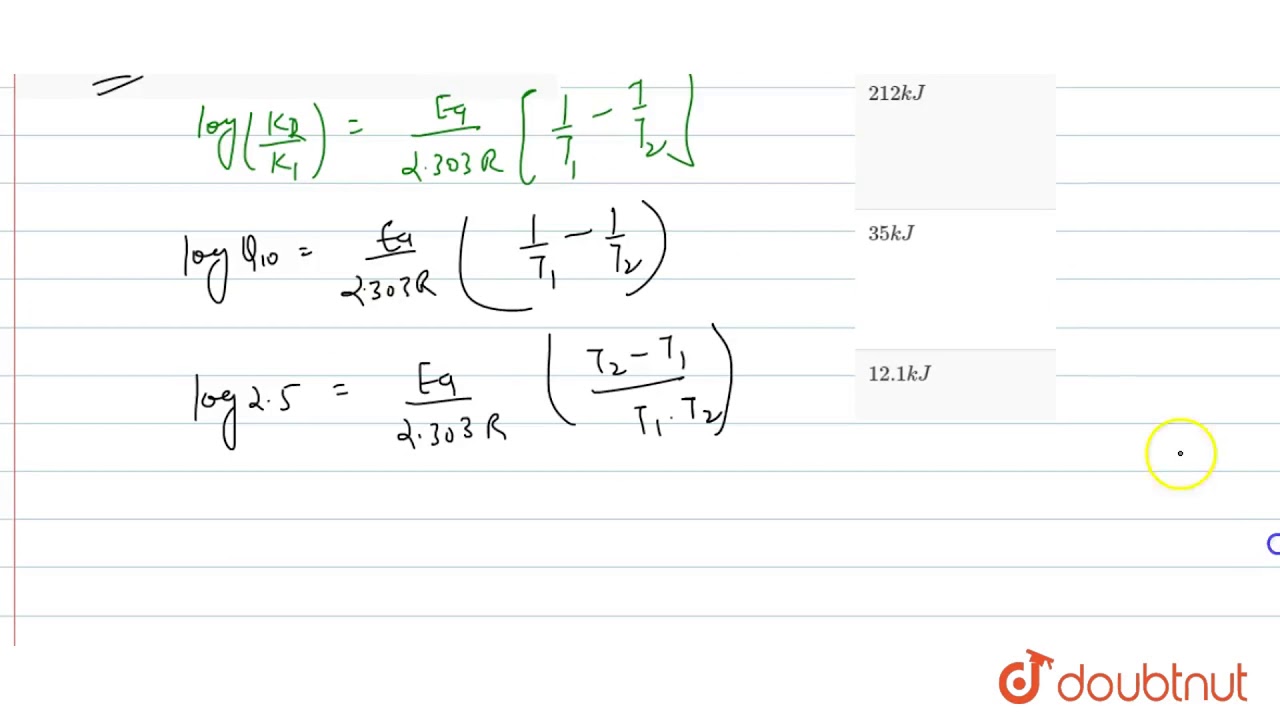 log(K2/K1) = Ea/2.303R [1/T1 - 1/T2]
log Q10 = Ea/2.303R (1/T1 - 1/T2)
log 2.5 = Ea/2.303R (T2 - T1/T1.T2)
212kJ
35kJ
12.1kJ
doubtnut